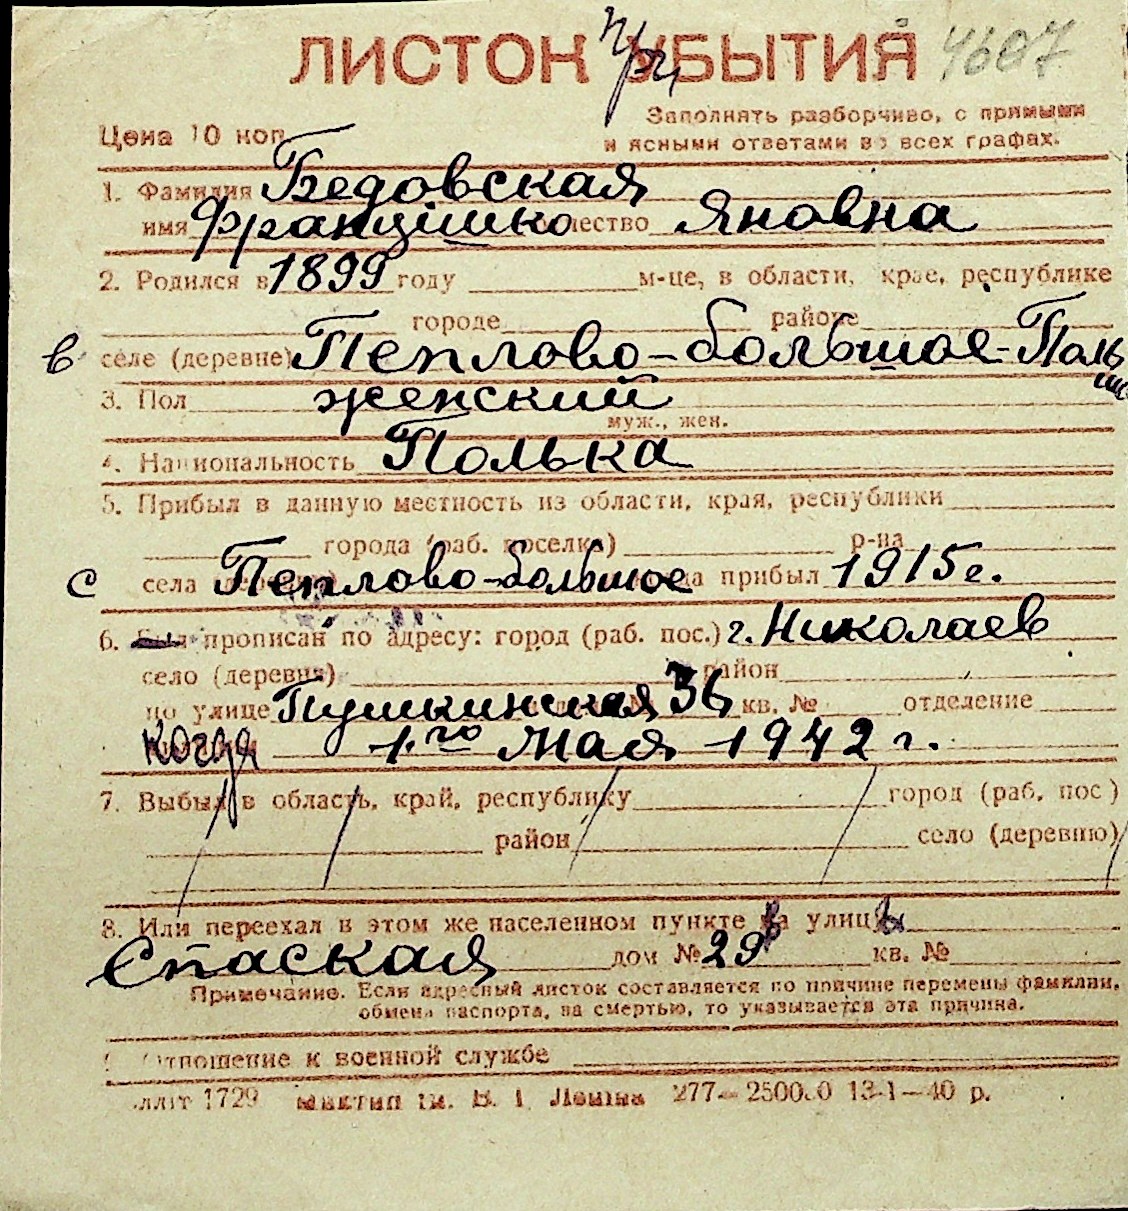 ЛИСТОК УБЫТИЯ 4607
Цена 10 коп.
Заполнять разборчиво, с прямыми
и ясными ответами во всех графах.
1. Фамилия Бедовская
имя Францишко отчество Яновна
2. Родился в 1899 году м-це, в области, крае, республике
городе районе
в селе (деревне) Пеплово-большое-Польш
3. Пол женский
муж., жен.
4. Национальность Полька
5. Прибыл в данную местность из области, края, республики
города (раб. поселка) р-на
с села Пеплово-большое когда прибыл 1915 г.
6. Был прописан по адресу: город (раб. пос.) г. Николаев
село (деревня) район
по улице Пушкинская 36 кв. № отделение
когда 1го Мая 1942 г.
7. Выбыл в область, край, республику город (раб. пос)
район село (деревню)
8. Или переехал в этом же населенном пункте на улицы
Спаская дом № 29 кв. №
Примечание. Если адресный листок составляется по причине перемены фамилии,
обмена паспорта, за смертью, то указывается эта причина.
Отношение к военной службе
ллит 1729 им. В. І. Леніна 277— 250000 13-1—40 р.